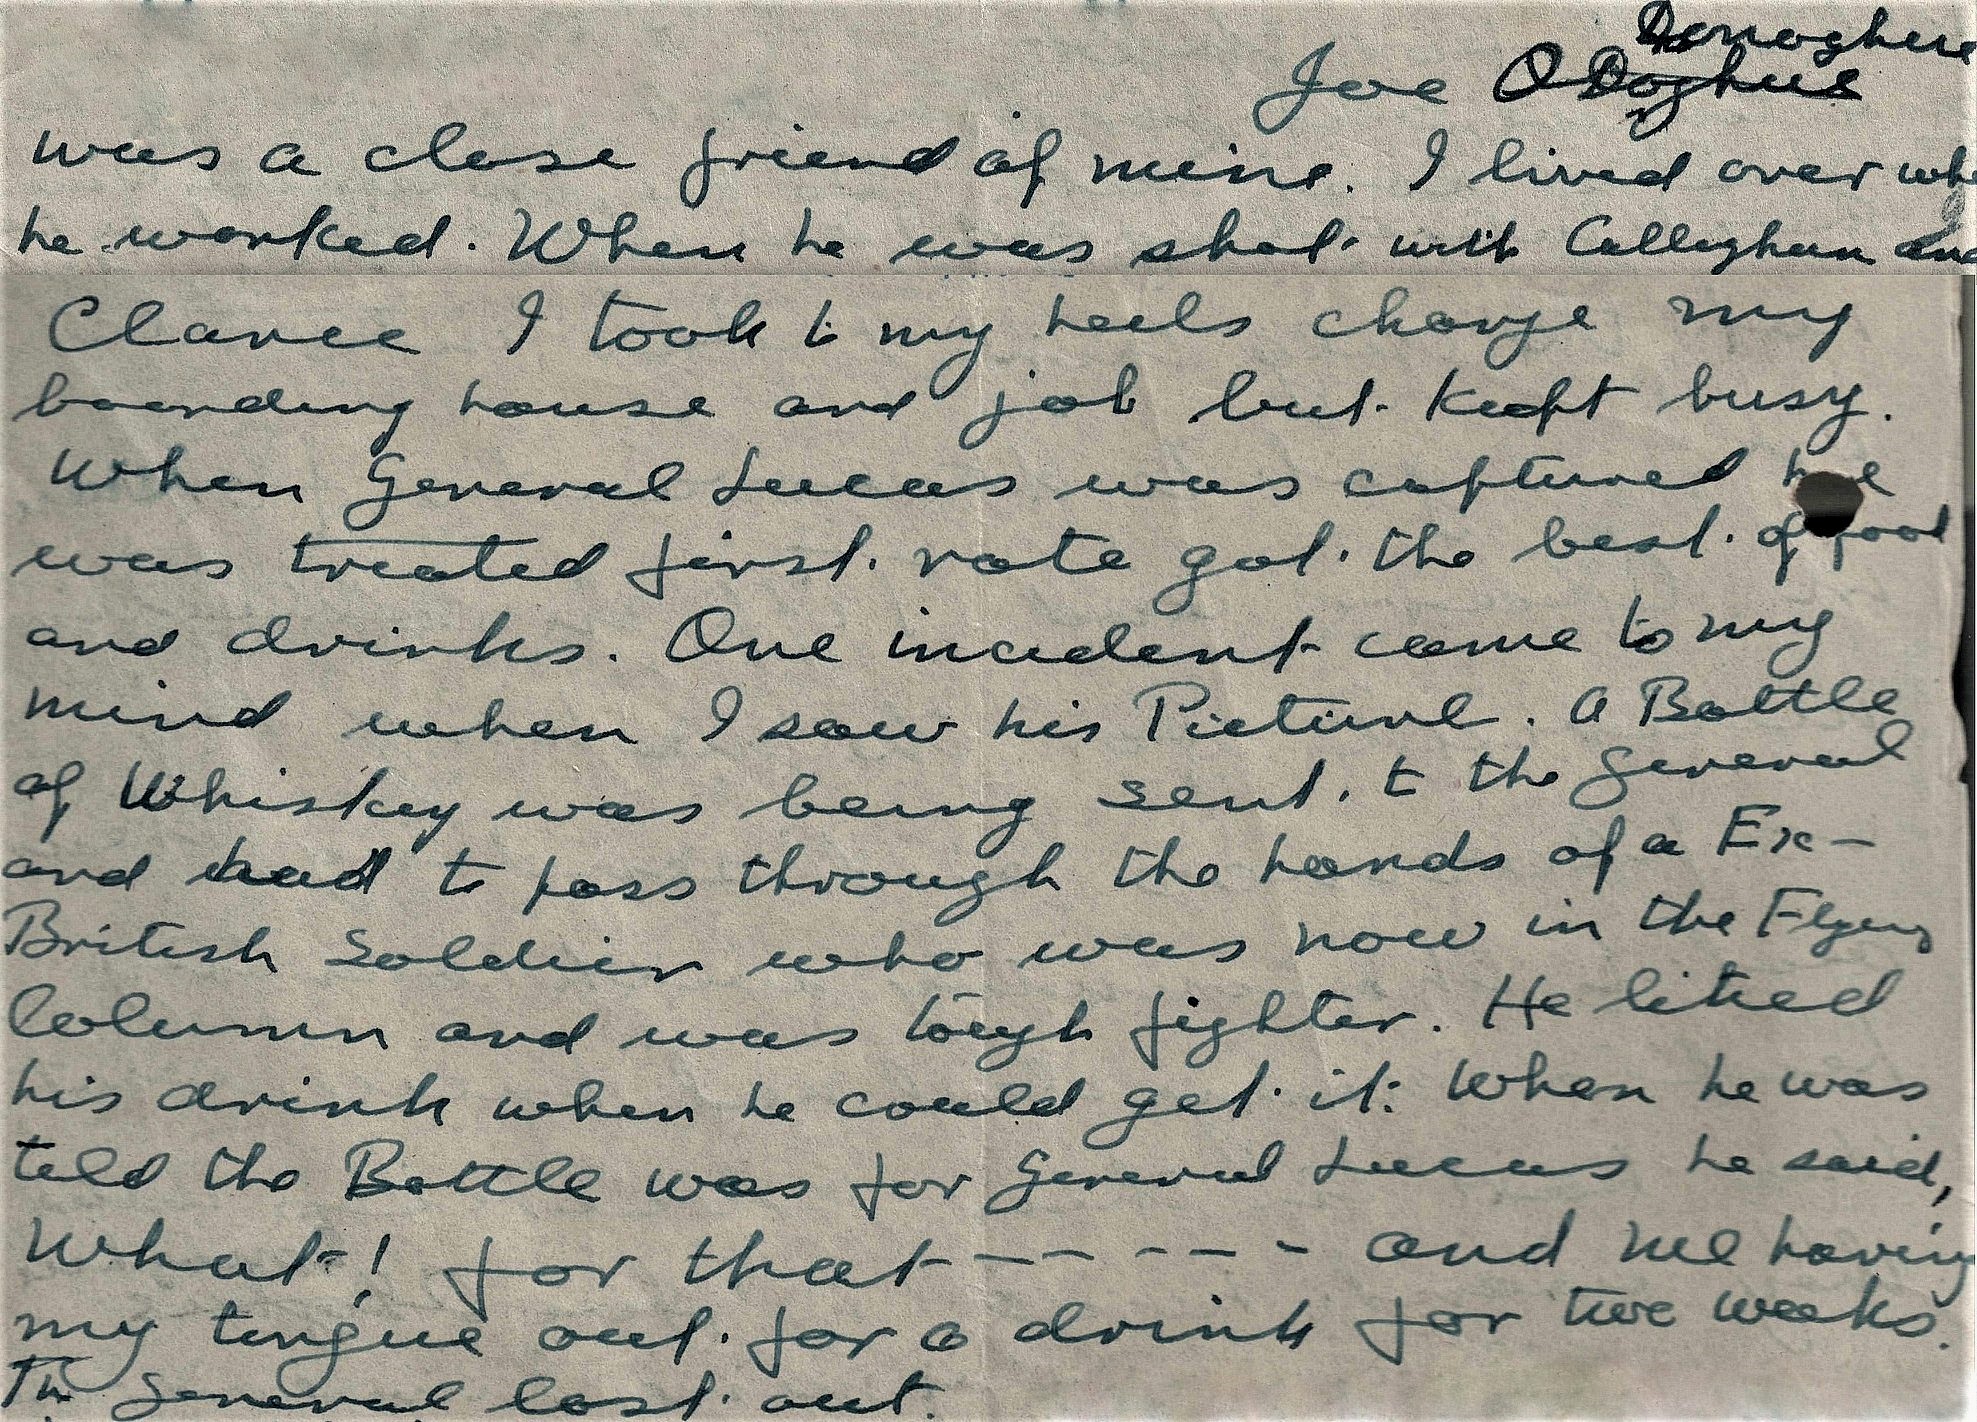 Donoghue
Joe O Doghue
was a close friend of mine. I lived over whe
he worked. When he was shot with Callaghan and
Clarce I took to my heels charge my
boarding house and job but kept busy.
When General Lucas was captured he
was treated first rate got the best of food
and drinks. One incident came to my
mind when I saw his Picture. A Bottle
of Whiskey was being sent to the General
and had to pass through the hands of a Ex-
British Soldier who was now in the Flying
Column and was tough fighter. He liked
his drink when he could get it. When he was
told the Bottle was for General Lucas he said,
What! for that - - - - - and me having
my tongue out for a drink for two weeks.
The General lost out.